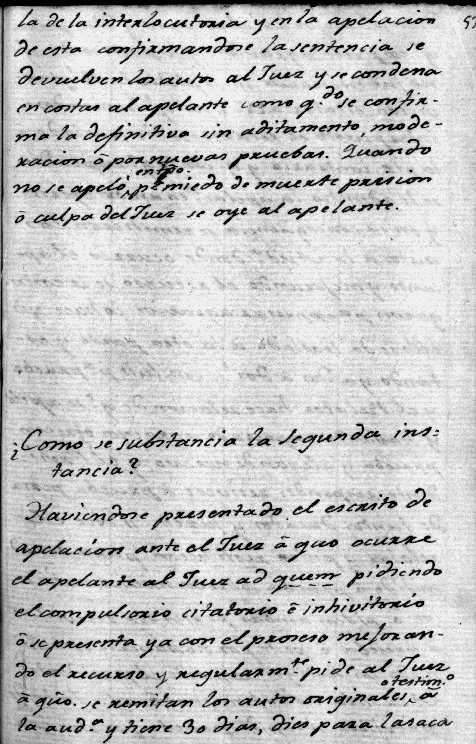 la de la interlocutoria y en la apelacion
de esta confirmandose la sentencia se
devuelven los autos al Juez y se condena
en costas al apelante como q.do se confir-
ma la definitiva sin aditamento, mode-
racion ō por nuevas pruebas. Quando
no se apelò, en tpō pr. miedo de muerte prision
ō culpa del Juez se oye al apelante.
¿Como se substancia la segunda ins=
tancia?
Haviendose presentado el escrito de
apelacion ante el Juez ā quo ocurre
el apelante al Juez ad quem pidiendo
el compulsorio citatorio ē inhivitorio
ō se presenta ya con el proceso mejoran-
do el recurso y regularm.te pide al Juez
ā quō. se remitan los autos originales, o testim.o ā
la aud.a y tiene 30 dias, dies para la saca